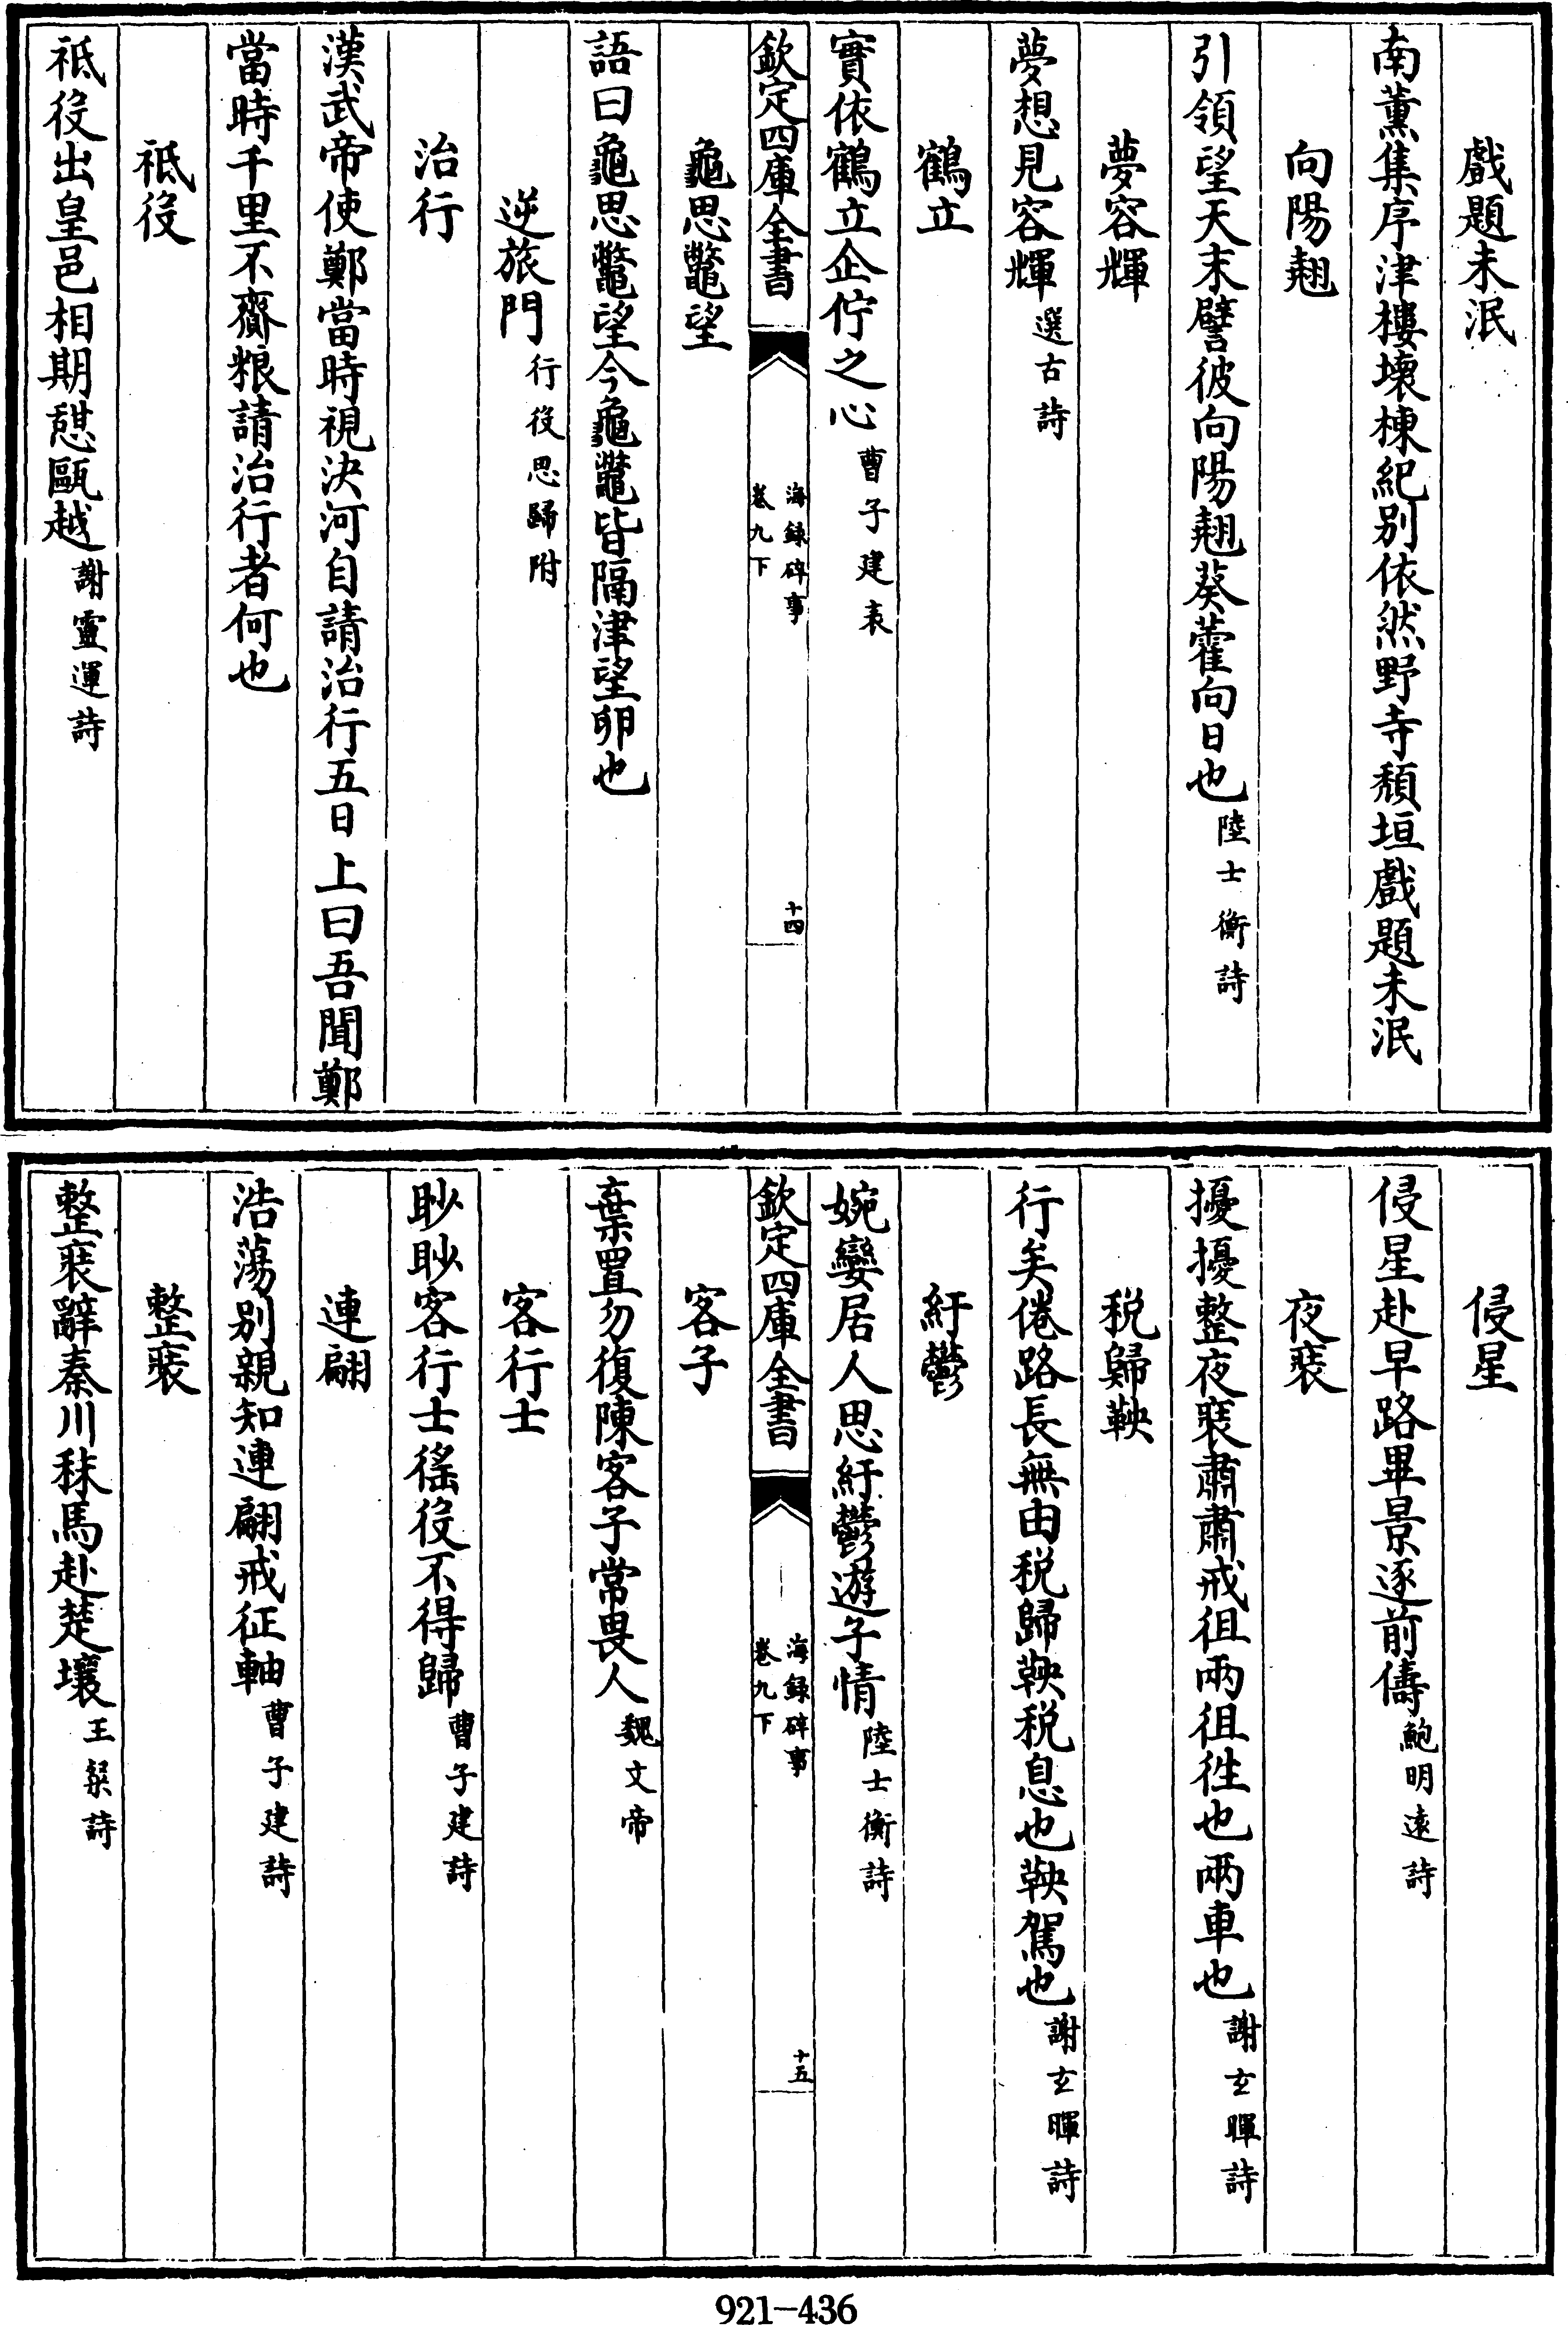 戲題未泯
南薰集序津樓壞棟紀别依然野寺頹垣戲題未泯
向陽翹
引領望天末譬彼向陽翹葵藿向日也陸士衡詩
夢容輝
夢想見容輝選古詩
鶴立
實依鶴立企佇之心曹子建表
欽定四庫全書
海録碎事
卷九下
十四
龜思鼈望
語曰龜思鼈望今龜鼈皆隔津望卵也
逆旅門行役思歸附
治行
漢武帝使鄭當時視決河自請治行五日上曰吾聞鄭
當時千里不齎粮請治行者何也
祗役
祗役出皇邑相期憇甌越謝靈運詩
侵星
侵星赴早路畢景逐前儔鮑明遠詩
夜裝
擾擾整夜裝肅肅戒徂兩徂徃也兩車也謝玄暉詩
税歸鞅
行矣倦路長無由税歸鞅税息也鞅駕也謝玄暉詩
紆鬱
婉孌居人思紆鬱遊子情陸士衡詩
欽定四庫全書
海録碎事
卷九下
十五
客子
棄置勿復陳客子常畏人魏文帝
客行士
眇眇客行士徭役不得歸曹子建詩
連翩
浩蕩别親知連翩戒征軸曹子建詩
整裝
整裝辭秦川秣馬赴楚壤王粲詩
921-436